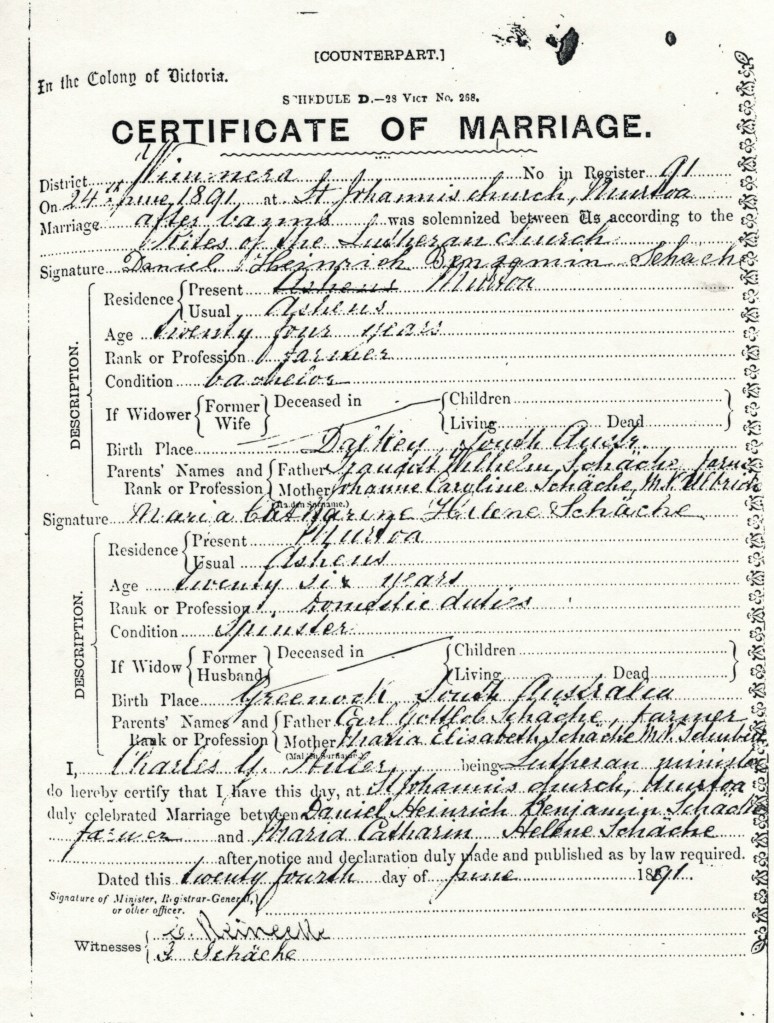 [COUNTERPART.]
In the Colony of Victoria.
SCHEDULE D.—28 VICT No. 268.
CERTIFICATE OF MARRIAGE.
District Wimmera No in Register 91
On 24th June 1891 at St Johannis church, Murtoa
Marriage after banns was solemnized between Us according to the
Rites of the Lutheran church
Signature Daniel Heinrich Benjamin Schäche
DESCRIPTION.
Residence Present Ashens Murtoa
Usual Ashens
Age twenty four years
Rank or Profession farmer
Condition bachelor
If Widower Former Wife Deceased in Children
Living Dead
Birth Place South Austr.
Parents' Names and Father August Wilhelm Schäche, farmer
Rank or Profession Mother Johanne Caroline Schäche, M.N.
(Maiden Surname.)
Signature Maria Catharine Helene Schäche
DESCRIPTION.
Residence Present Murtoa
Usual Ashens
Age twenty six years
Rank or Profession Domestic duties
Condition Spinster
If Widow Former Husband Deceased in Children
Living Dead
Birth Place Greenock South Australia
Parents' Names and Father Carl Gottlob Schäche, farmer
Rank or Profession Mother Maria Elisabeth Schäche M.N.
(Maiden Surname.)
I, Charles G. being Lutheran minister
do hereby certify that I have this day, at St Johannis church, Murtoa
duly celebrated Marriage between Daniel Heinrich Benjamin Schäche
farmer and Maria Catharin Helene Schäche
after notice and declaration duly made and published as by law required.
Dated this twenty fourth day of June 1891.
Signature of Minister, Registrar-General,
or other officer.
Witnesses Reinecke
Schäche